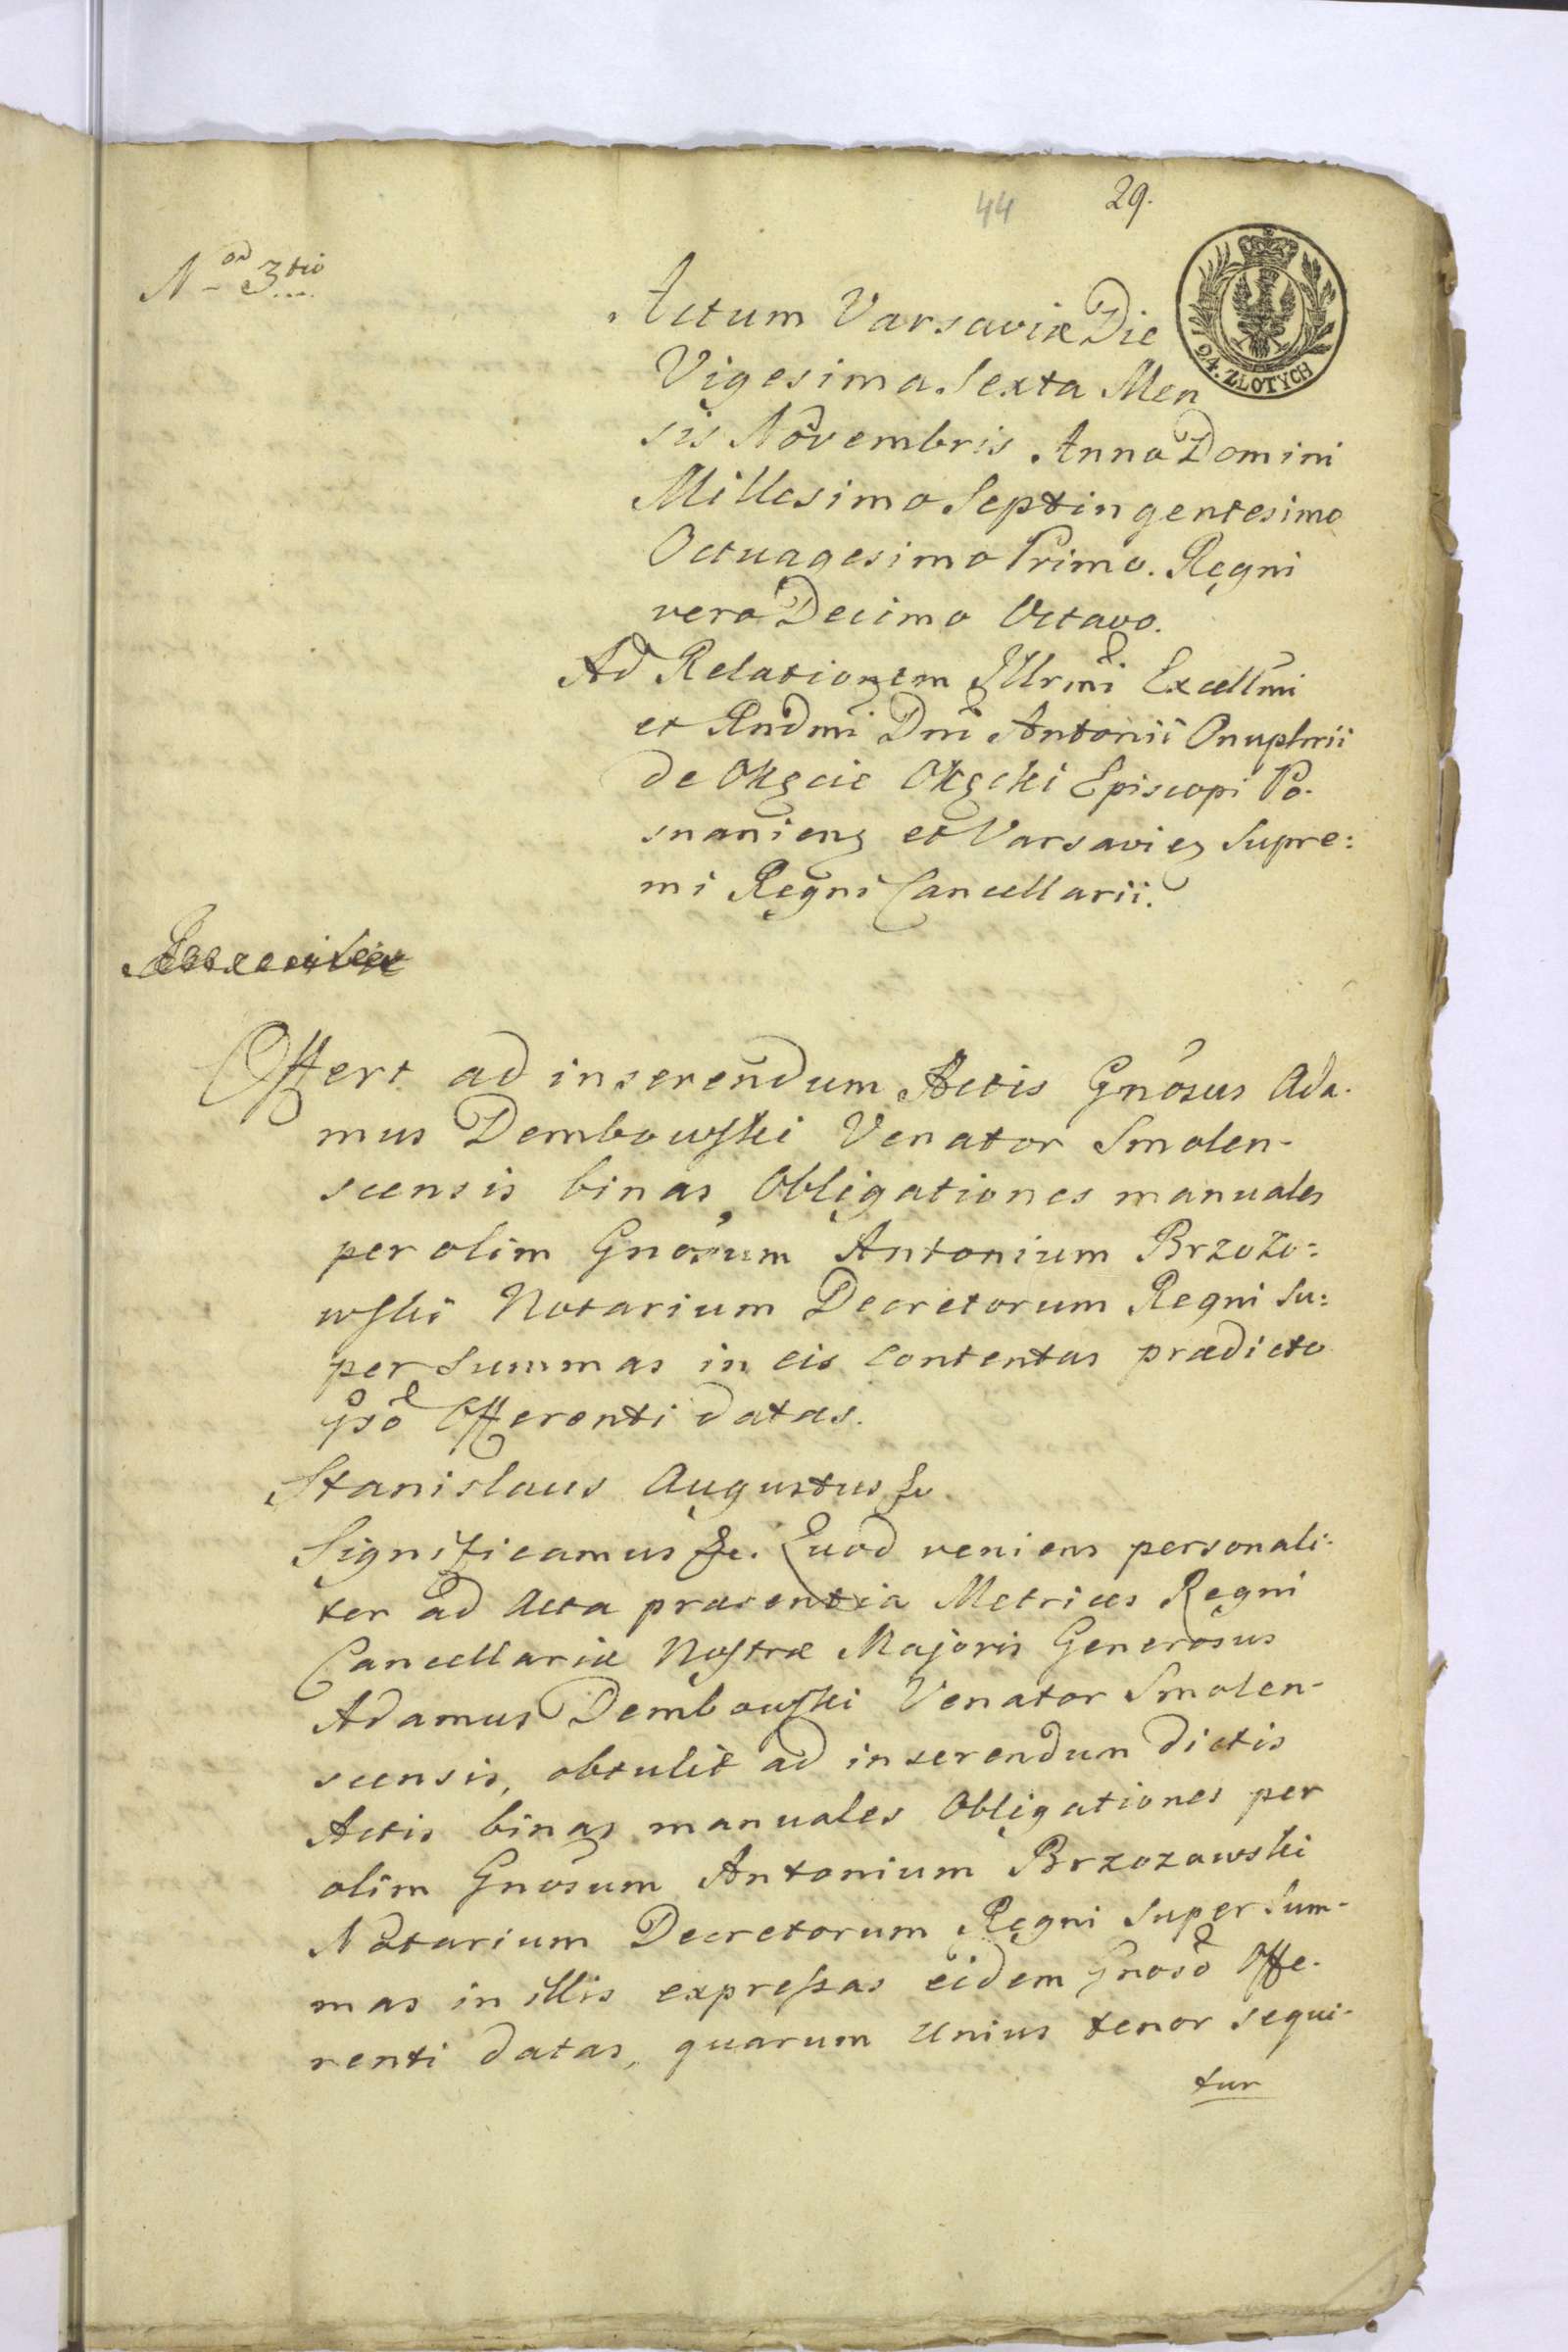 44 29.
N<sup>ad</sup> 3<sup>tio</sup>
Actum Varsaviæ Die
94. ZŁOTYCH
Vigesima Sexta Men
sis Novembris Anno Domini
Millesimo Septingentesimo
Octuagesimo Primo. Regni
vero Decimo Octavo.
Ad Relationem Illrmi Excellmi
et Rndmi Dni Antonii Onuphrii
de Okęcie Okęcki Episcopi Po-
snanieng et Varsavieg Supre:
mi Regni Cancellarii.
Offert ad inserendum Actis Gnosus Ada-
mus Dembowski Venator Smolen-
scensis binas Obligationes manuales
per olim Gnosum Antonium Brzozo:
wski Notarium Decretorum Regni Su:
per Summas in eis contentas prædicto
gso Offerenti datas.
Stanislaus Augustus &c
Significamus &c. Quod veniens personali-
ter ad Acta præsentia Metrices Regni
Cancellariæ Nostræ Majoris Generosus
Adamus Dembowski Venator Smolen-
scensis, obtulit ad inserendum dictis
Actis binas manuales Obligationes per
olim Gnosum Antonium Brzozowski
Notarium Decretorum Regni super Sum-
mas in illis expressas eidem Gnoso Offe-
renti datas, quarum unius tenor sequi-
tur